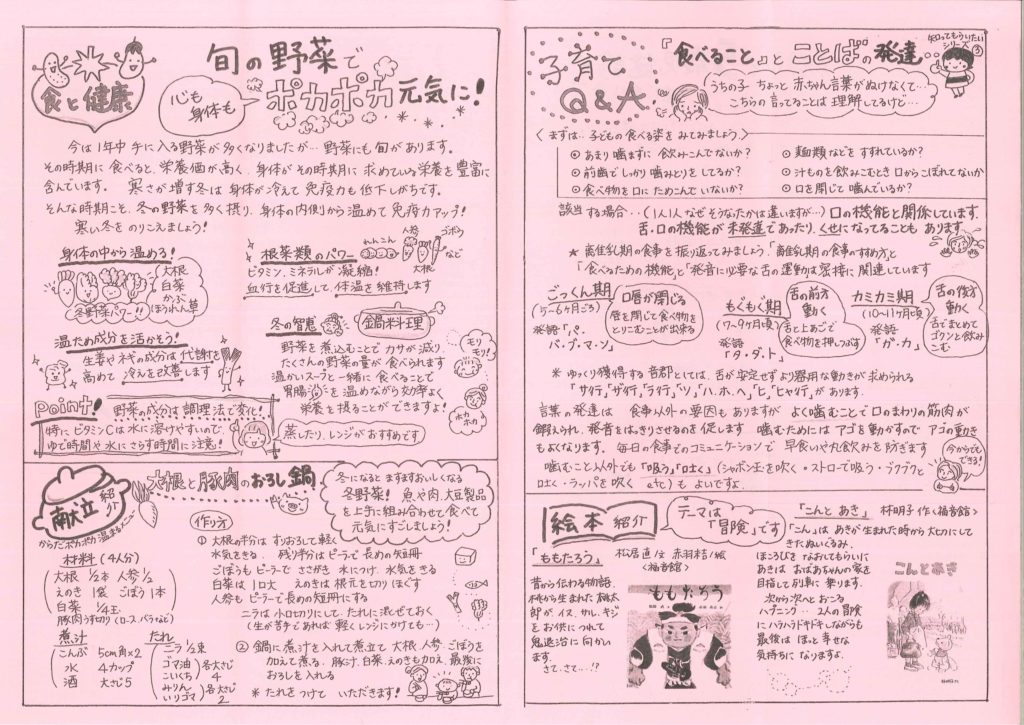 食と健康
旬の野菜で
心も
身体も
ポカポカ元気に!
今は1年中手に入る野菜が多くなりましたが…野菜にも旬があります。
その時期に食べると、栄養価が高く、身体がその時期に求めている栄養を豊富に
含んでいます。寒さが増す冬は身体が冷えて免疫力も低下しがちです。
そんな時期こそ、冬の野菜を多く摂り、身体の内側から温めて免疫力アップ!
寒い冬をのりこえましょう!
身体の中から温める!
大根
白菜
かぶ
ほうれん草
冬野菜パワー!!
根菜類のパワー
れんこん
人参
ゴボウ
大根
など
ビタミン、ミネラルが凝縮!
血行を促進して、体温を維持します
温ため成分を活かそう!
生姜やネギの成分は代謝を
高めて冷えを改善します
冬の智恵
鍋料理
野菜を煮込むことでカサが減り
たくさんの野菜の量が食べられます
温かいスープと一緒に食べることで
胃腸を温めながら効率よく
栄養を摂ることができますよ!
モリモリ!
ホカホカ
Point!
野菜の成分は調理法で変化!
特にビタミンCは水に溶けやすいので
ゆで時間や水にさらす時間に注意!
蒸したり、レンジがおすすめです
献立紹介
からだポカポカ温まるメニュー
大根と豚肉のおろし鍋
冬になるとますますおいしくなる
冬野菜! 魚や肉、大豆製品
を上手に組み合わせて食べて
元気にすごしましょう!
材料(4人分)
大根 1/2本 人参1/2
えのき 1袋 ごぼう1本
白菜 1/4玉
豚肉うすぎり(ロース、バラなど)
煮汁
こんぶ 5cm角×2
水 4カップ
酒 大さじ5
たれ
ニラ 1/2束
ゴマ油
こいくち
各大さじ4
みりん
いりゴマ
各大さじ2
作り方
① 大根の半分はすりおろして軽く
水気をきる。残り半分はピーラーで長めの短冊
ごぼうもピーラーでささがき 水につけ、水気をきる
白菜は1口大 えのきは根元を切りほぐす
人参もピーラーで長めの短冊にする
ニラは小口切りにして、たれに混ぜておく
(生が苦手であれば軽くレンジにかけても…)
② 鍋に煮汁を入れて煮立て大根、人参、ごぼうを
加えて煮る。豚汁、白菜、えのきも加え、最後に
おろしを入れる
＊たれをつけていただきます!
子育てQ&A
『食べること』とことばの発達
知ってもらいたいシリーズ③
うちの子ちょっと赤ちゃん言葉がぬけなくて…
こちらの言ってることは理解してるけど…
〈まずは…子どもの食べる姿をみてみましょう。〉
◎あまり噛まずに飲みこんでないか?
◎前歯でしっかり噛みとりをしてるか?
◎食べ物を口にためこんでいないか?
◎麺類などをすすれているか?
◎汁ものを飲みこむとき口からこぼれてないか
◎口を閉じて噛んでいるか?
該当する場合‥(1人1人なぜそうなたかは違いますが…)口の機能と関係しています。
舌、口の機能が未発達であったり、くせになってることもあります
★離乳期の食事を振り返ってみましょう「離乳期の食事のすすめ方」と
「食べるための機能」と「発音に必要な舌の運動」は密接に関連しています
ごっくん期
(5~6ヶ月ごろ)
発語「パ、
バ、プ、マ、ン」
口唇が閉じる
唇を閉じて食べ物を
とりこむことが出来る
もぐもぐ期
(7~9ヶ月頃)
発語
「タ・ダ・ト」
舌の前方
動く
舌と上あごで
食べ物を押しつぶす
カミカミ期
(10~11ヶ月頃)
発語
「ガ・カ」
舌の後方
動く
舌でまとめて
ゴクンと飲み
こむ
＊ゆっくり獲得する音郡としては、舌が安定せずより器用な動きが求められる
「サ行」、「ザ行」、「ラ行」、「ツ」、「ハ、ホ、ヘ」、「ヒ」、「ヒャ行」があります。
言葉の発達は 食事以外の要因もありますが よく噛むことで口のまわりの筋肉が
鍛えられ、発音をはっきりさせるのを促します 噛むためにはアゴを動かすのでアゴの動き
もよくなります。毎日の食事でのコミュニケーションで早食いや丸飲みを防ぎます
噛むこと以外でも「吸う」「吐く」(シャボン玉を吹く・ストローで吸う・ブクブクと
吐く・ラッパを吹く etc)もよいですよ。
今からでもできる!
絵本紹介
テーマは
「冒険」です
「ももたろう」
松居直/文 赤羽末吉/絵
〈福音館〉
昔から伝わる物語。
桃から生まれた桃太
郎が、イヌ、サル、キジ
をお供につれて
鬼退治に向かい
ます。
さて、さて‥…!?
ももたろう
「こんとあき」 林明子 作〈福音館〉
「こん」は、あきが生まれた時から大切にして
きたぬいぐるみ。
ほころびをなおしてもらいに
あきはおばあちゃんの家を
目指して列車に乗ります。
次から次へとおこる
ハプニング…2人の冒険
にハラハラドキドキしながらも
最後はほっと幸せな
気持ちになりますよ。
こんとあき